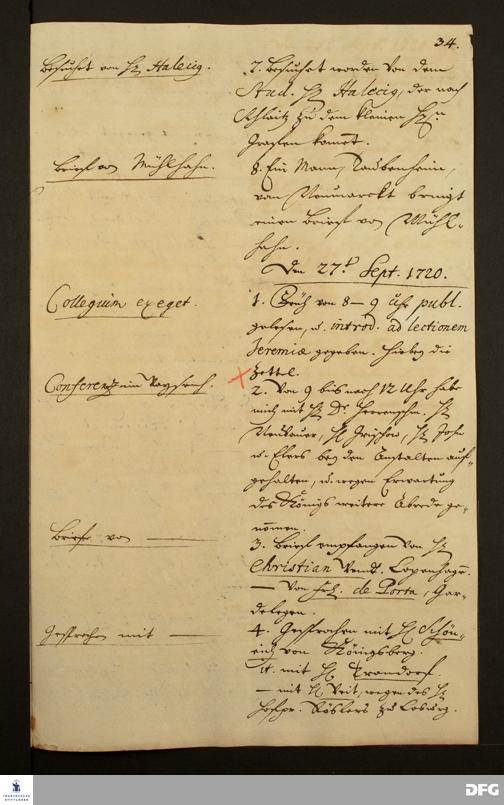 34.
Besuchet von H. Halecig.
7. besuchet worden von dem
Stud. H. Halecig, der nach
Schlaitz zu dem kleinen H.n
Grafen komt.
Brief von Mühlhahn.
8. Ein Mann, Taubenheim,
von Neumarckt bringt
einen Brief von Mühl-
hahn.
Den 27. Sept. 1720.
Collegium exeget.
1. Früh von 8-9 Uhr publ.
gelesen, u. introd. ad lectionem
Jeremiæ gegeben. Hiebey die
Zettel.
Conferentz im
2. Von 9 bis nach 12 Uhr habe
mich mit H. Dr. Herrnschm. H.
Neubauer, H. Grischow, H.
u. Elers bey den Anstalten auf-
gehalten, u. wegen Erwartung
des Königs weitere Abrede ge-
nommen.
Briefe von
3. Brief empfangen von H.
Christian Copenhagen.
- Von de Porta, Gar-
delegen.
Gesprochen mit
4. Gesprochen mit H. Schön-
eich von Königsberg.
it. mit H.
- mit H. Veit, wegen des H.
Hofpr. Röslers zu Coburg.
FRANCKESCHE
STIFTUNGEN
DFG